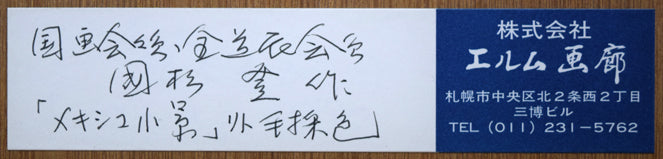 国画会々員、全道展会員
國松 登 作
「メキシコ小景」リト手採色
株式会社
エルム画廊
札幌市中央区北2条西2丁目
三博ビル
TEL (011) 231-5762